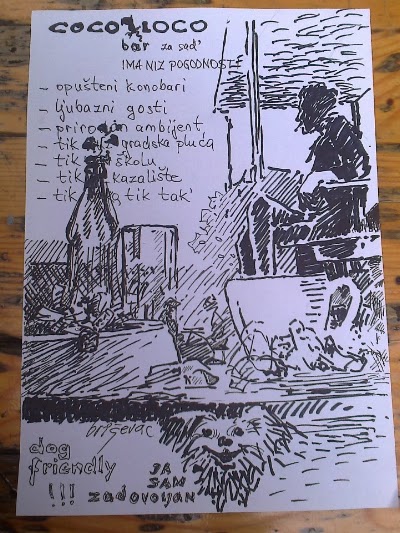 COCO LOCO
bar za sad'
IMA NIZ POGODNOSTI
- opušteni konobari
- ljubazni gosti
- prirodan ambijent
- tik gradska pluća
- tik školu
- tik kazalište
- tik tik tak'
briševac
dog
friendly
!!!
JA
SAM
zadovoljan